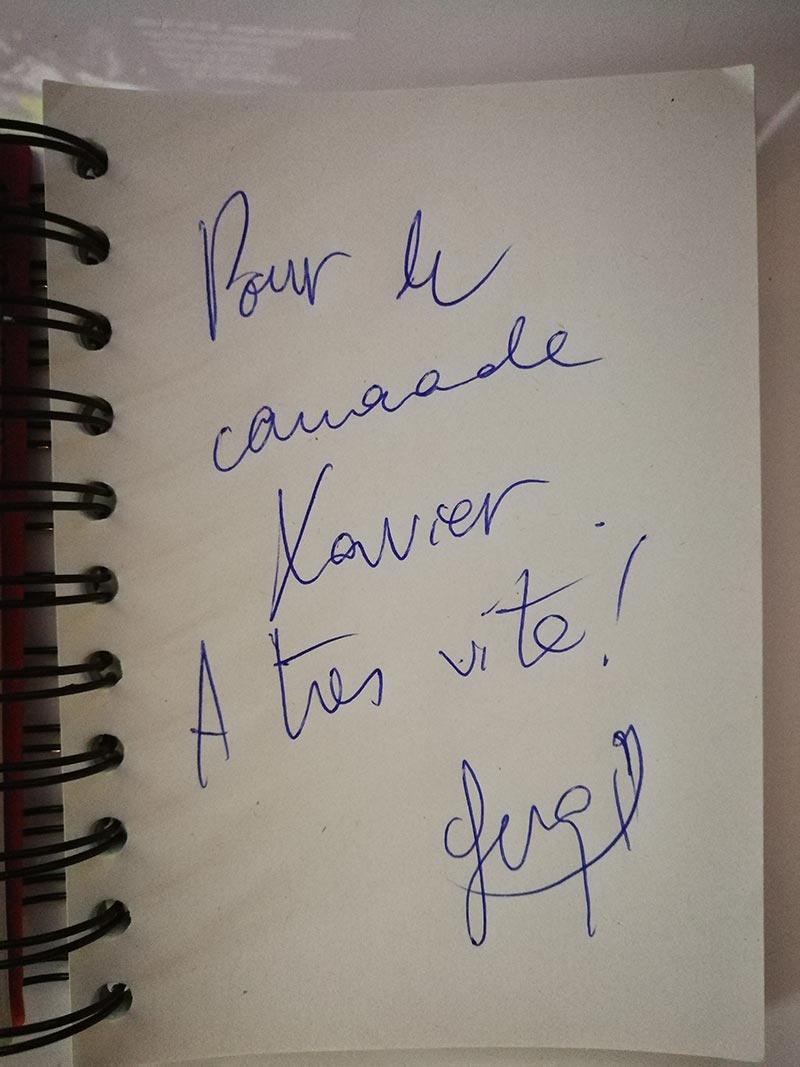 Pour le
camarade
Xavier.
A tres vite!